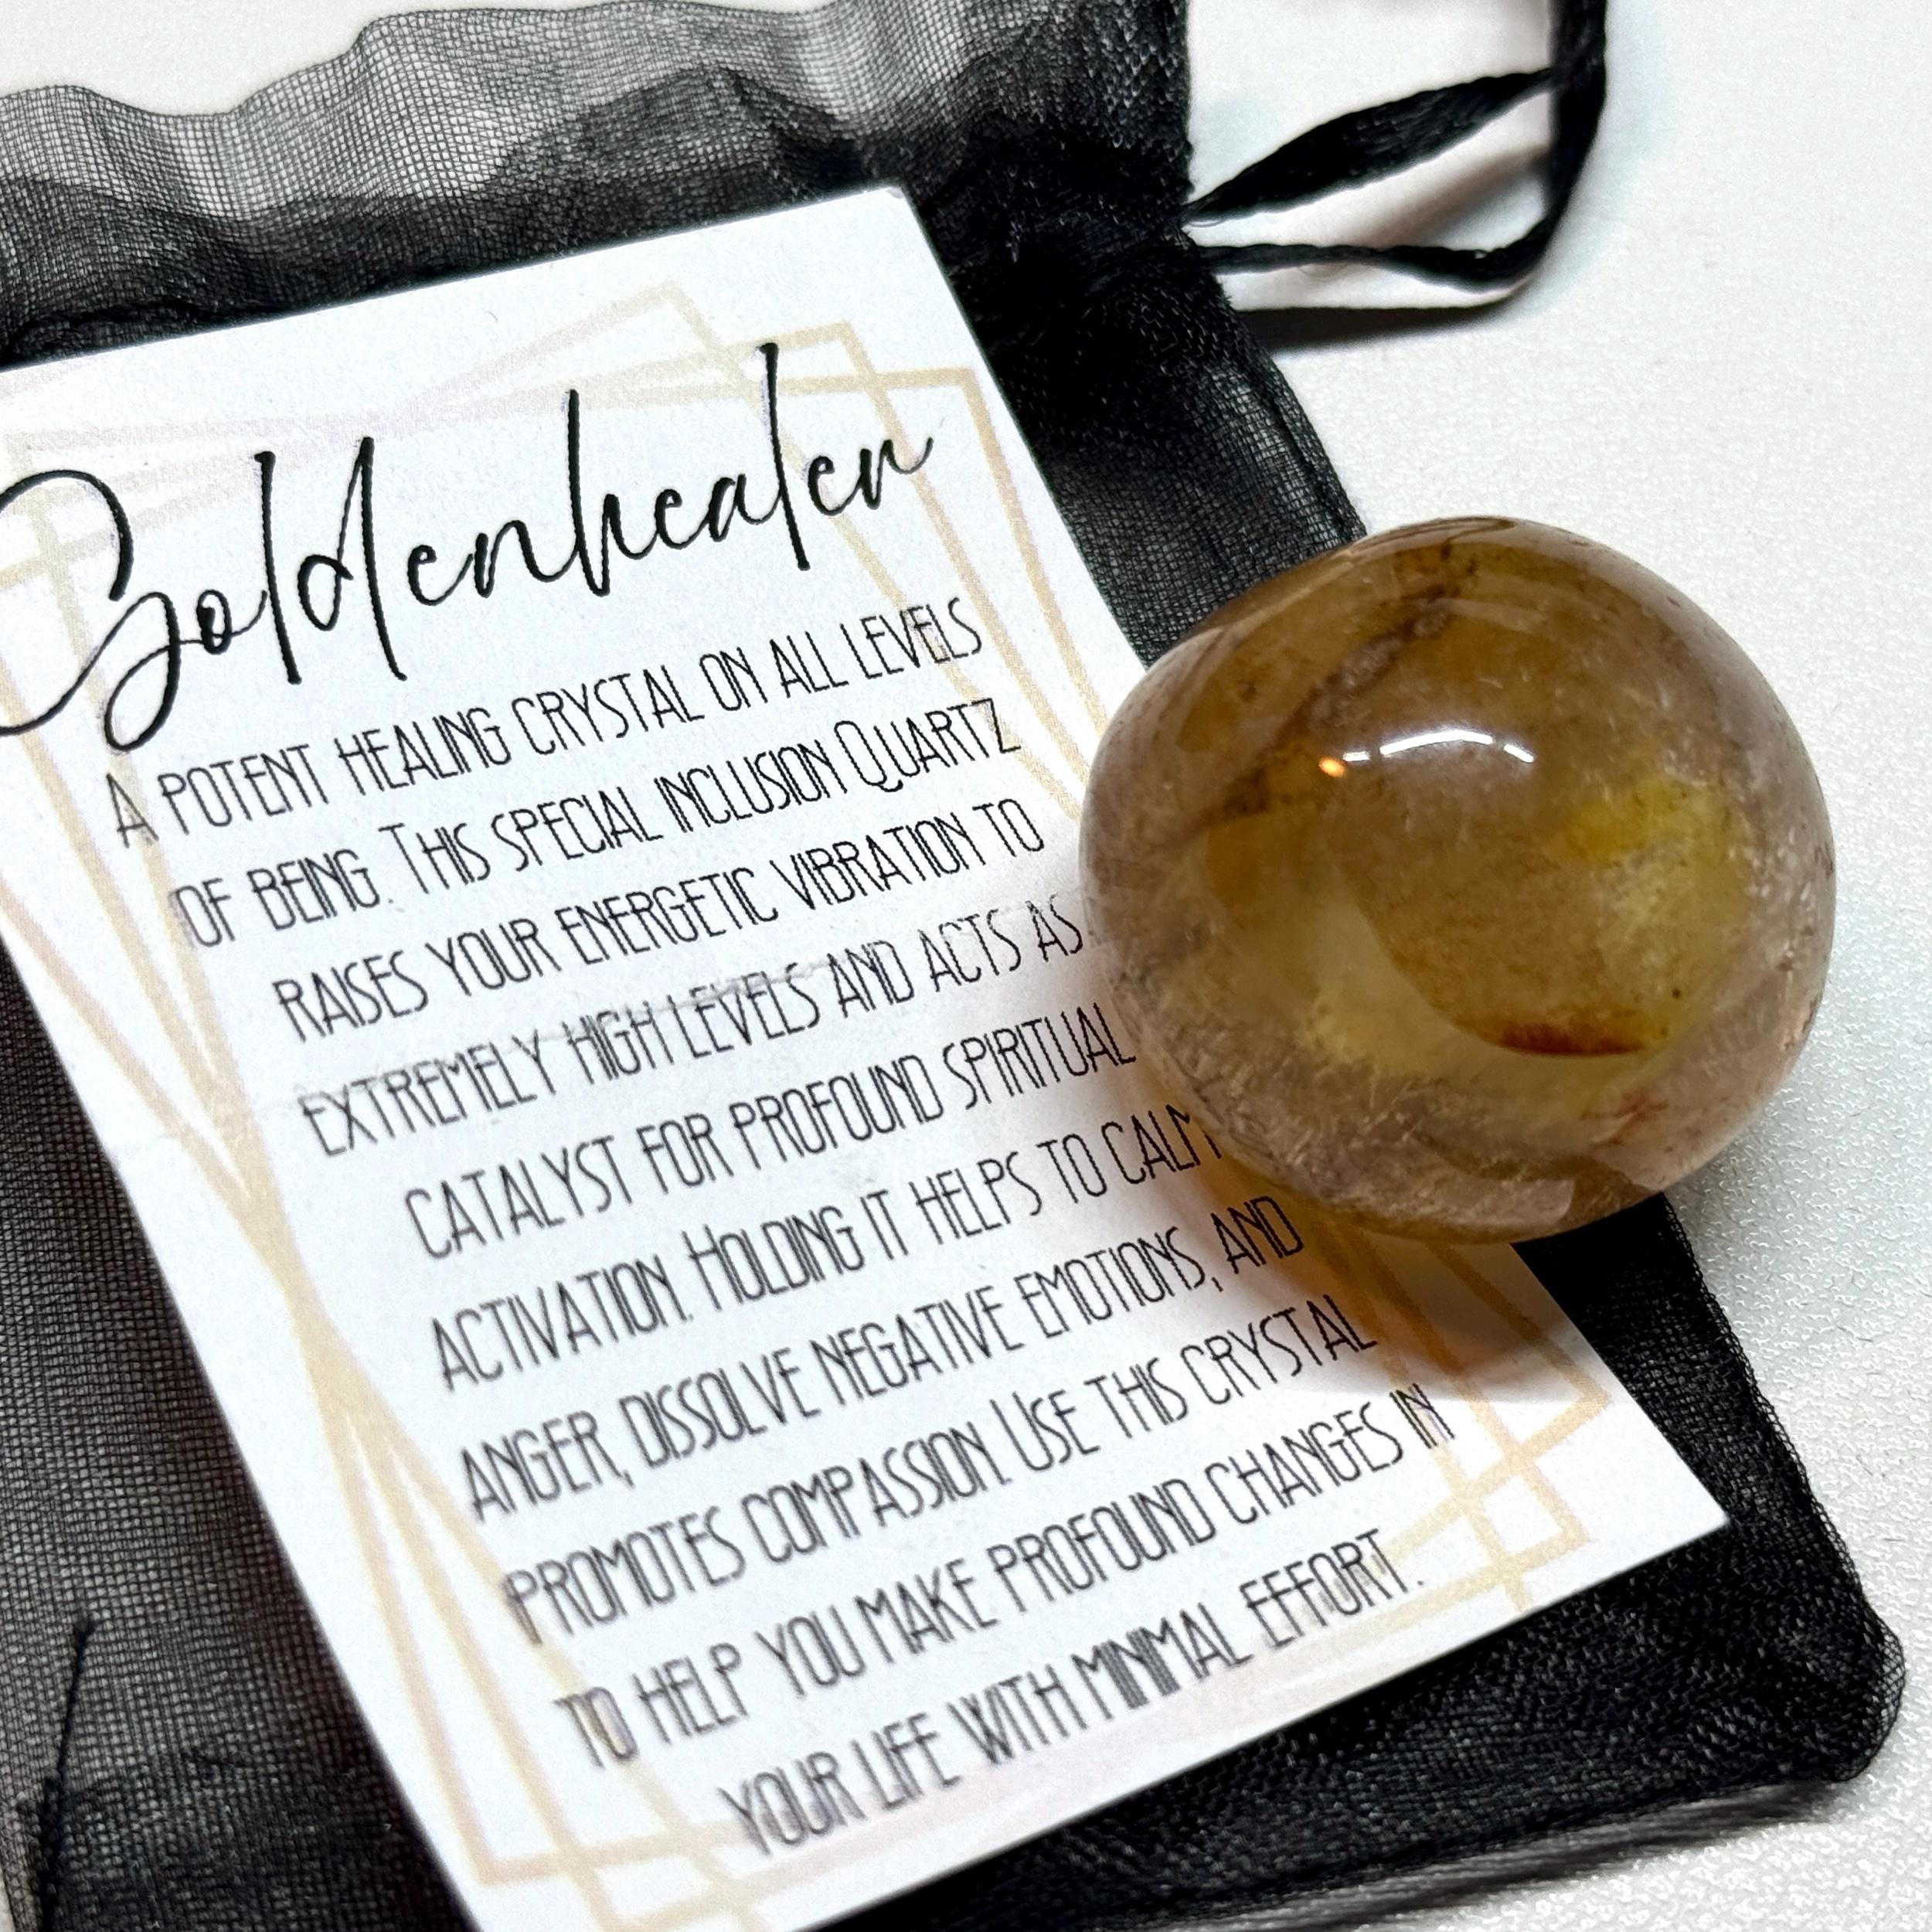 Goldenhealer
A POTENT HEALING CRYSTAL ON ALL LEVELS
OF BEING. THIS SPECIAL INCLUSION QUARTZ
RAISES YOUR ENERGETIC VIBRATION TO
EXTREMELY HIGH LEVELS AND ACTS AS
CATALYST FOR PROFOUND SPIRITUAL
ACTIVATION. HOLDING IT HELPS TO CALM
ANGER, DISSOLVE NEGATIVE EMOTIONS, AND
PROMOTES COMPASSION. USE THIS CRYSTAL
TO HELP YOU MAKE PROFOUND CHANGES IN
YOUR LIFE WITH MINIMAL EFFORT.